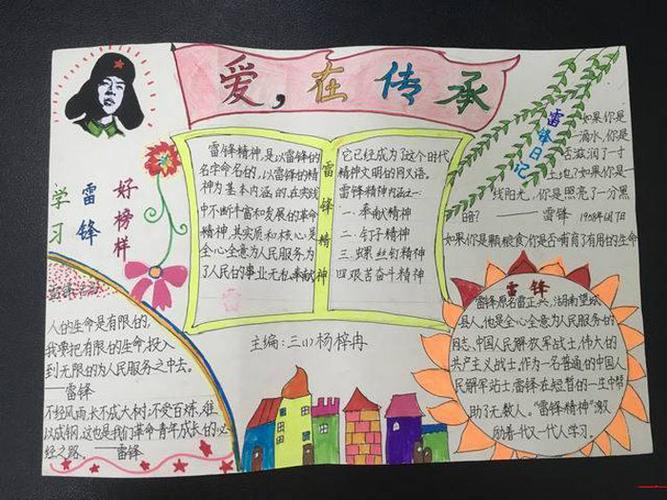 爱,在传承
学习
雷锋
好榜样
雷锋精神,是以雷锋的
名字命名的,以雷锋的精
神为基本内涵的,在实践
中不断丰富和发展的革命
精神,其实质和核心是
全心全意为人民服务,为
了人民的事业无私奉献
雷锋精神
它已经成为了这个时代
精神文明的同义语。
雷锋精神内涵之一:
一.奉献精神
二.钉子精神
三.螺丝钉精神
四艰苦奋斗精神
雷锋日记
如果你是
一滴水,你是
否滋润了一寸
土地?如果你是一
线阳光,你是照亮了一分黑
暗?——雷锋
如果你是颗粮食你是否哺育了有用的生命
人的生命是有限的,
我要把有限的生命,投入
到无限的为人民服务之中去。
——雷锋
不经风雨,长不成大树;不受百炼,难
以成钢。这也是我们革命青年成长的必
经之路。——雷锋
主编:三(1)杨梓冉
雷锋
雷锋原名雷正兴,湖南望城
县人,他是全心全意为人民服务的
同志,中国人民解放军战士,伟大的
共产主义战士,作为一名普通的中国人
民解军站士雷锋在短暂的一生中帮
助了无数人。"雷锋精神"激
励着一代又一代人学习。